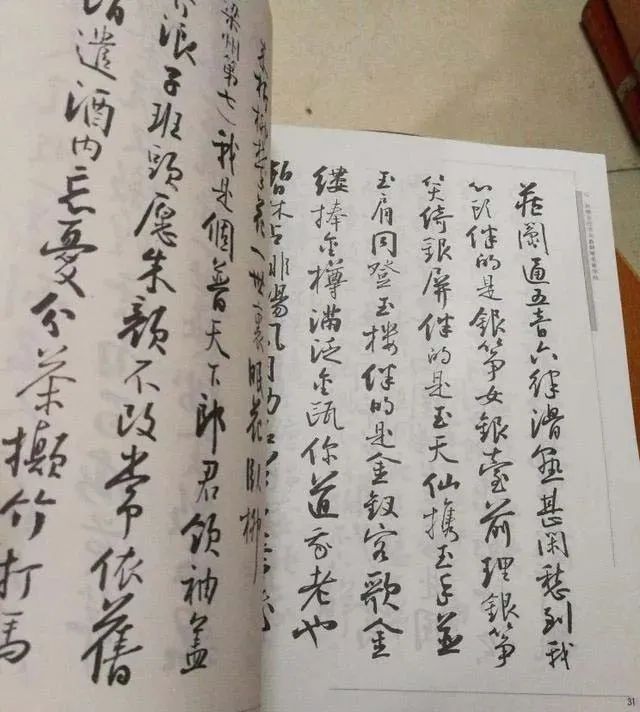 一世裏眠花臥柳
梁州第七 我是個普天下郎君領袖蓋
浪子班頭愿朱顔不改常依舊
遣酒内忘憂分茶攧竹打馬
通五音六律滑熟甚閑愁到我
心頭伴的是銀筝女銀臺前理銀筝
笑倚銀屏伴的是玉天仙携玉手並
玉肩同登玉楼伴的是金釵客歌金
縷捧金樽滿泛金甌你道我老也
暫休占排場風月功
31